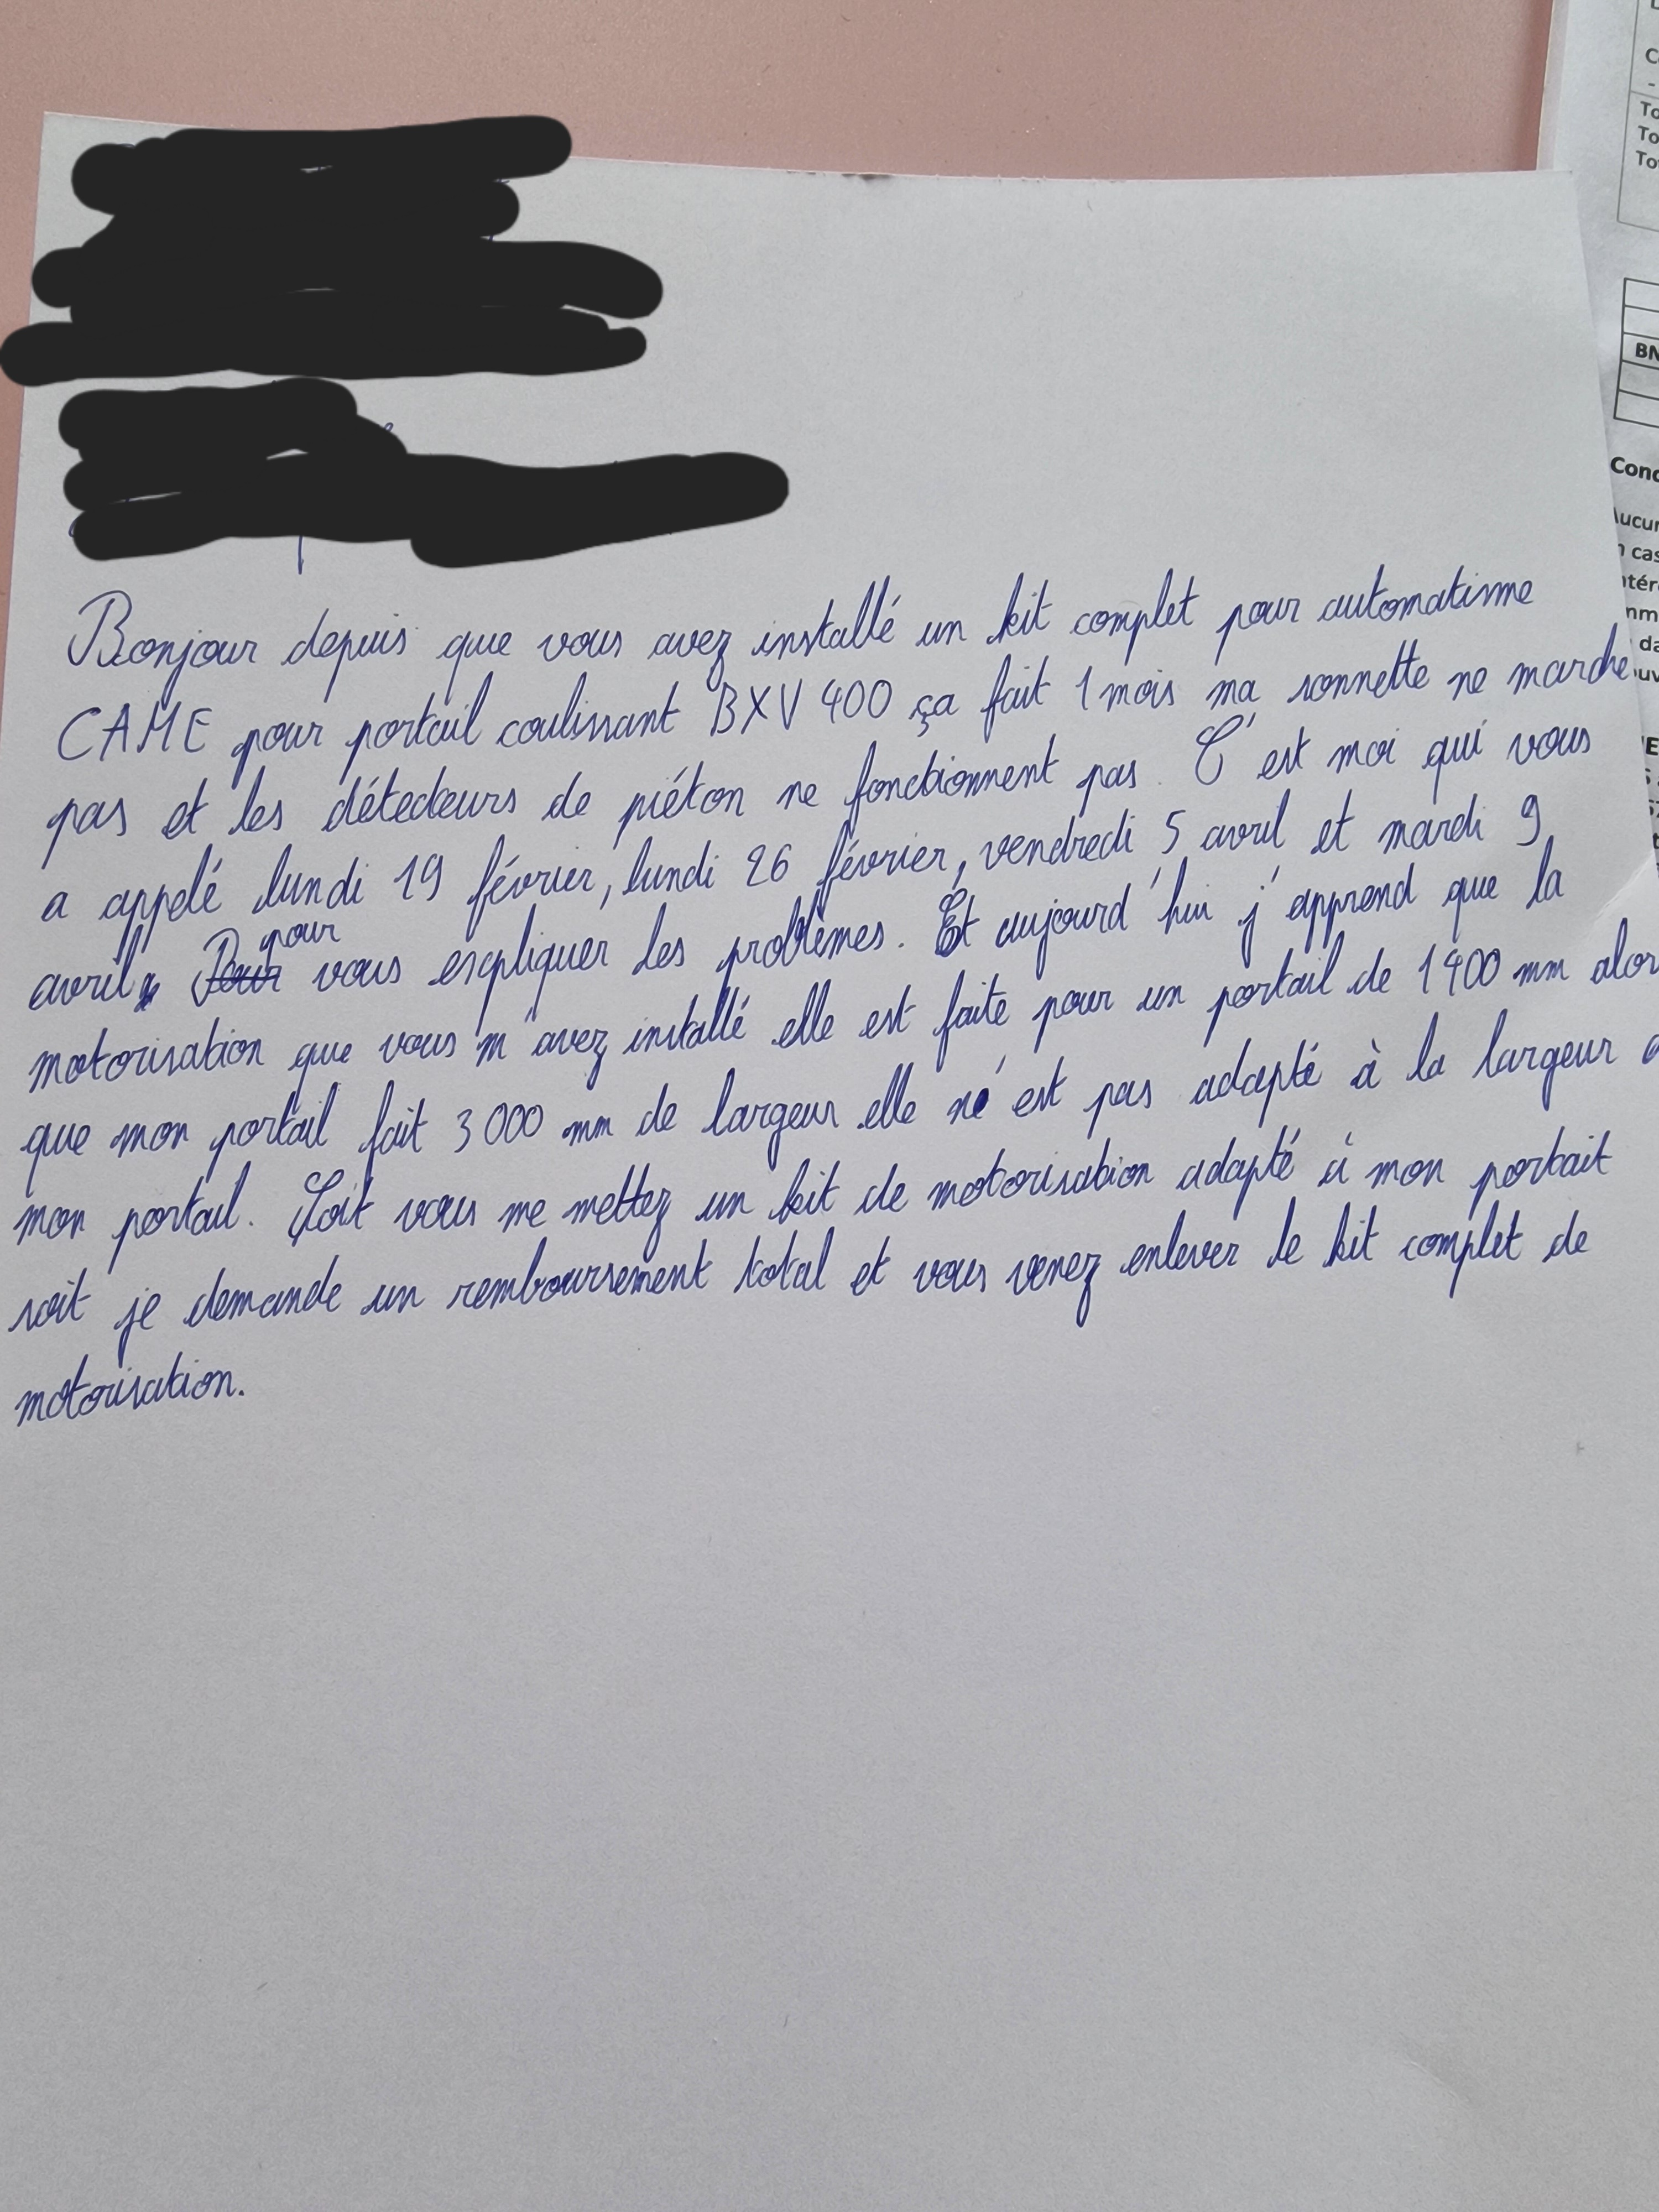 Bonjour depuis que vous avez installé un kit complet pour automatisme
CAME pour portail coulissant BXV 400 ça fait 1 mois ma sonnette ne marche
pas et les détecteurs de piéton ne fonctionnent pas. C'est moi qui vous
a appelé lundi 19 février, lundi 26 février, vendredi 5 avril et mardi 9
avril, pour vous expliquer les problèmes. Et aujourd'hui j'apprend que la
motorisation que vous m'avez installé elle est faite pour un portail de 1400 mm alor
que mon portail fait 3000 mm de largeur elle n'est pas adapté à la largeur
mon portail. Soit vous me mettez un kit de motorisation adapté à mon portait
soit je demande un remboursement total et vous venez enlever le kit complet de
motorisation.
To
To
To
BN
Conc